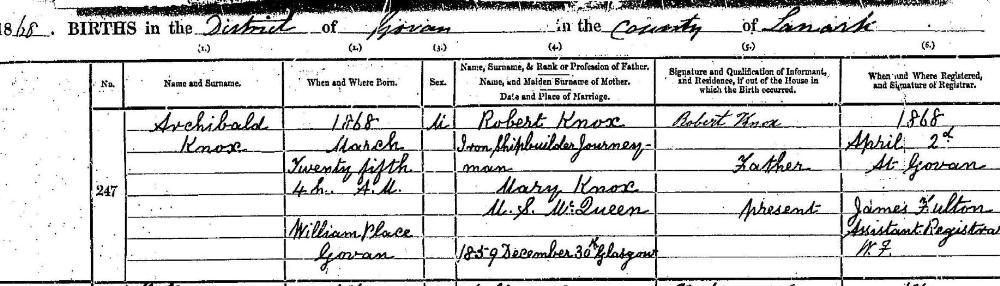 1868. BIRTHS in the District of Govan in the County of Lanark
(1.) (2.) (3.) (4.) (5.) (6.)
No.
Name and Surname.
When and Where Born.
Sex.
Name, Surname, & Rank or Profession of Father.
Name, and Maiden Surname of Mother.
Date and Place of Marriage.
Signature and Qualification of Informant,
and Residence, if out of the House in
which the Birth occurred.
When and Where Registered,
and Signature of Registrar.
247
Archibald
Knox
1868
March
Twenty fifth
4 h. A.M.
William Place
Govan
M
Robert Knox
Iron Shipbuilder Journey-
man
Mary Knox
M. S. McQueen
1859 December 30th Glasgow
Robert Knox
Father
present
1868
April 2d
At Govan
James Fulton
Assistant Registrar
W. F.